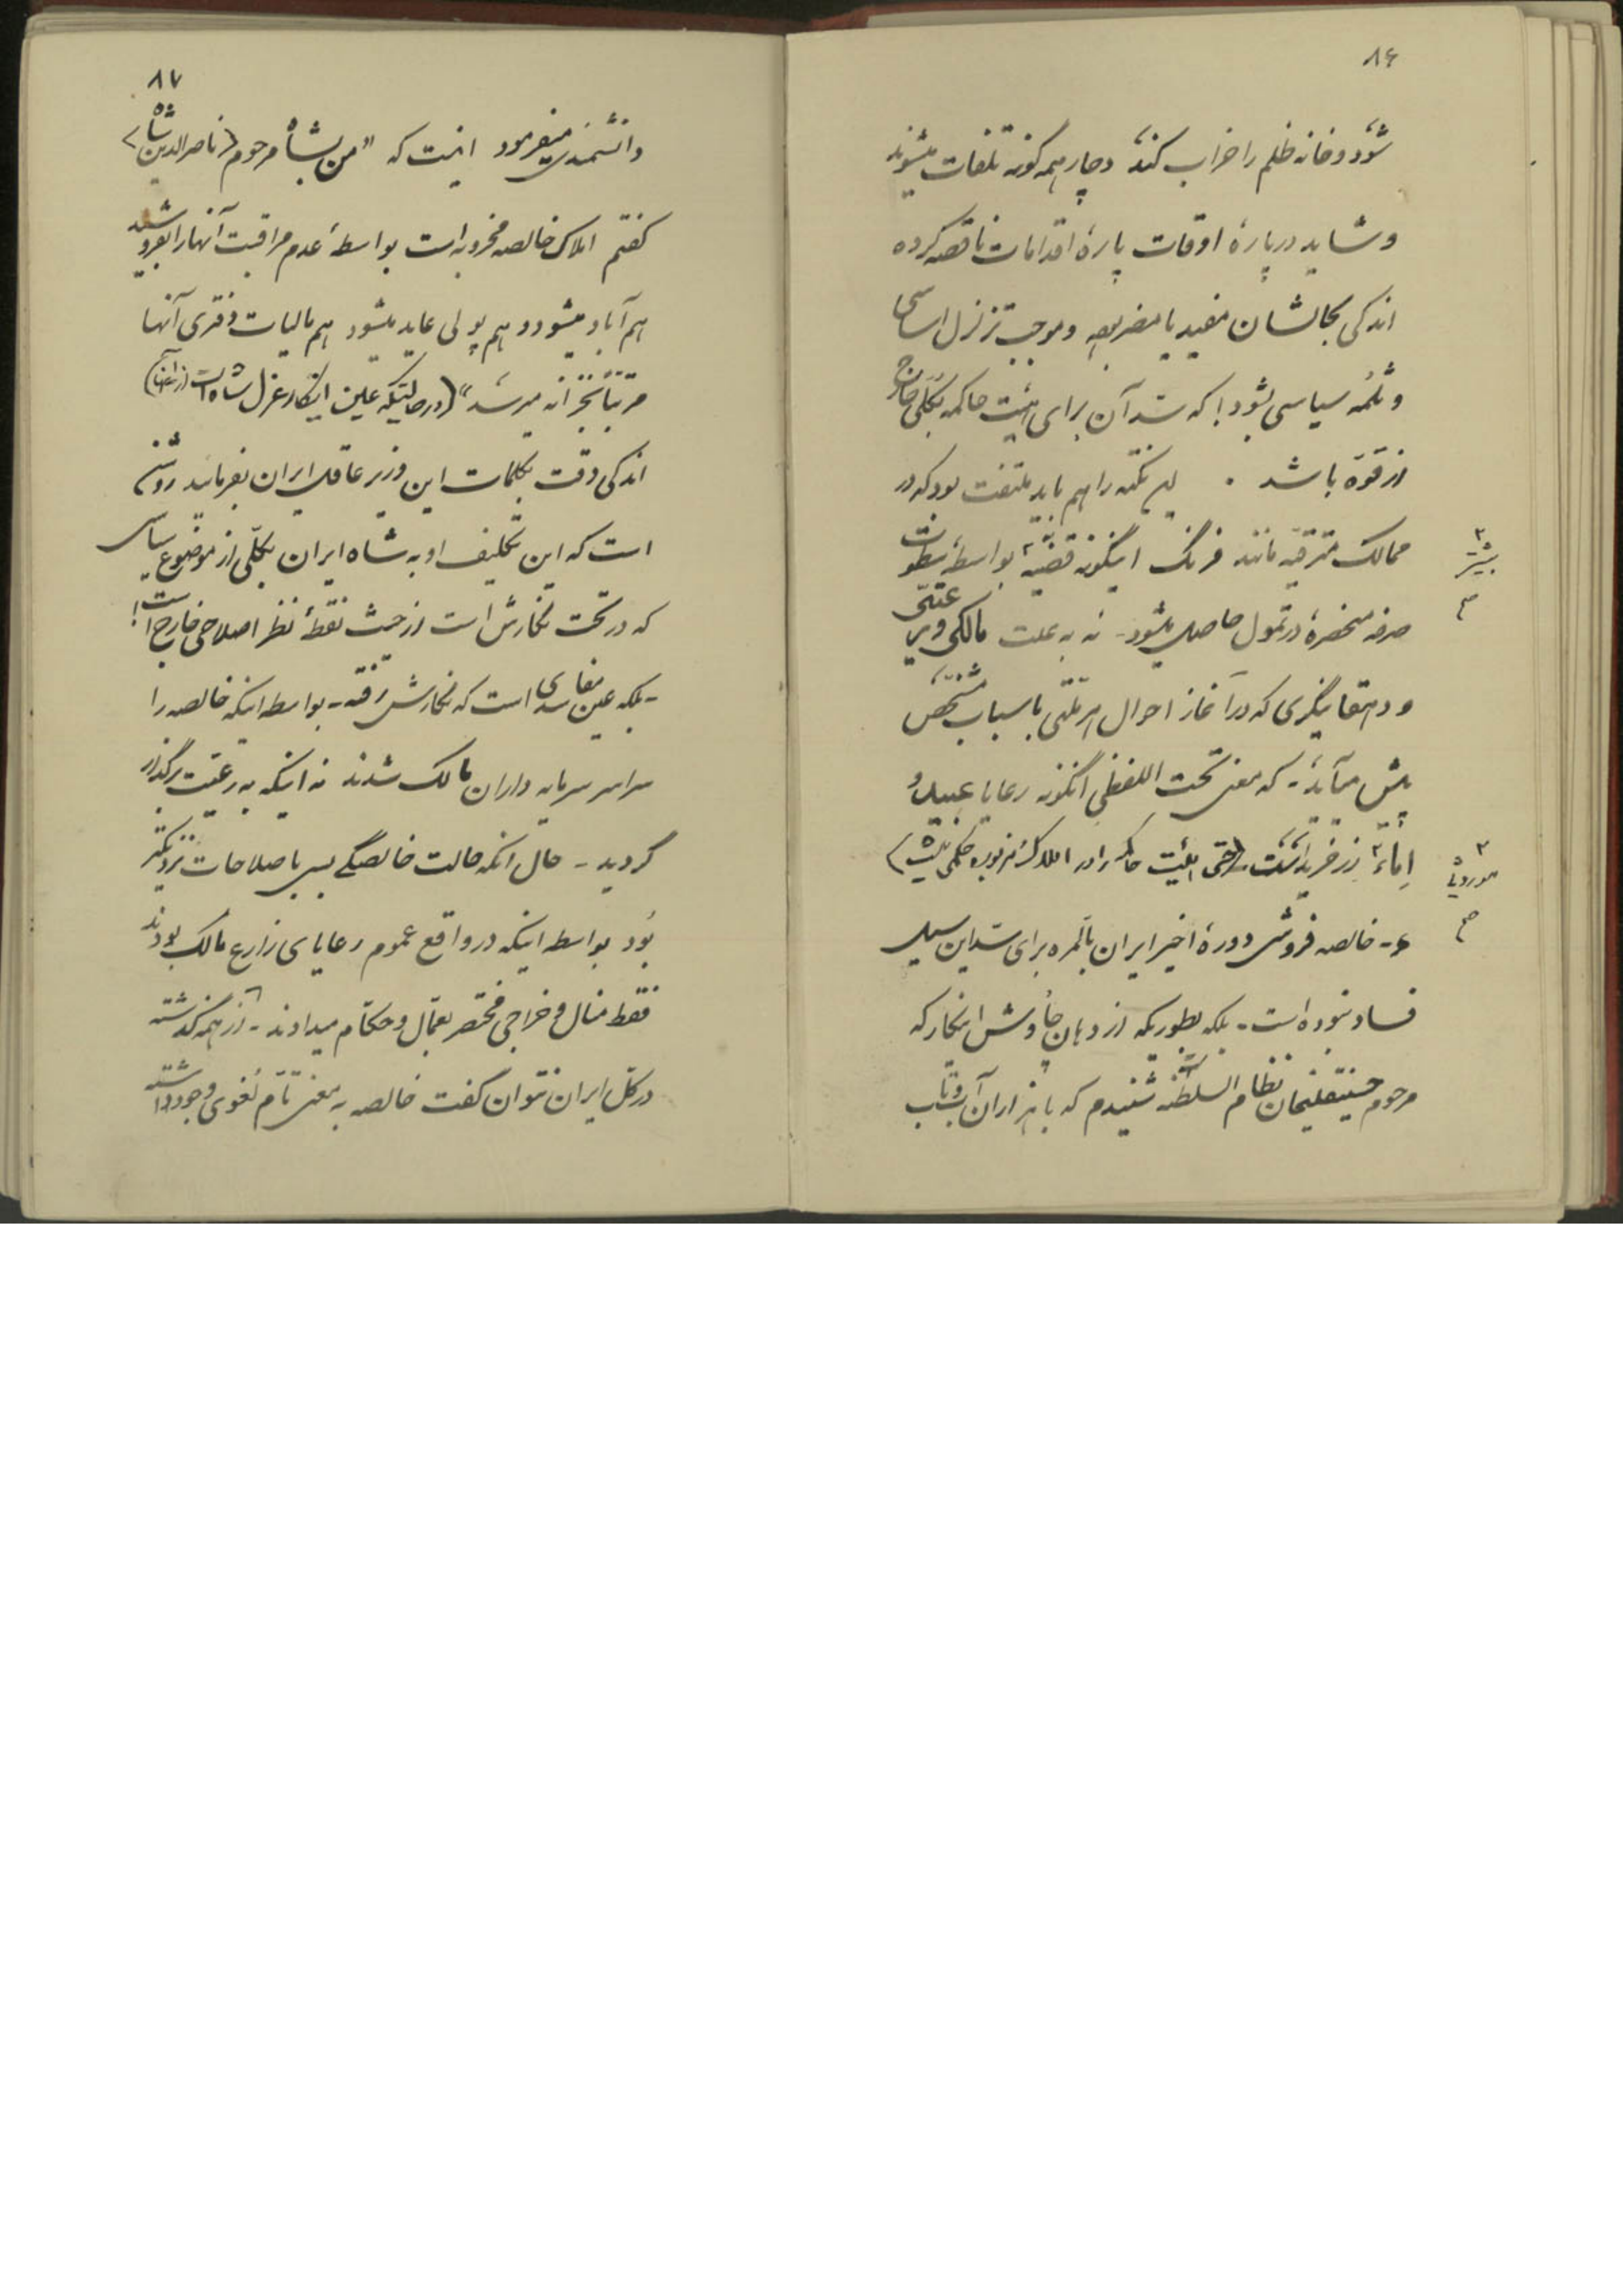 ۸۶
شود و خانه ظلم را خراب کند، دچار همه گونه تلفات میشوند
و شاید در پارهٔ اوقات پارهٔ اقدامات ناقصه کرده
اندکی بحالشان مفید یا مضر بوده و موجب تزلزل اساسی
و ثلمهٔ سیاسی بشود! که سد آن برای هیئت حاکمه بکلی خارج
از قوّه باشد . این نکته را هم باید ملتفت بود که در
ممالک مترقیه مانند فرنگ اینگونه قضیه بواسطهٔ سطوت
بیشتر
صرفه منحصرهٔ در تمول حاصل میشود - نه به علت مالکی و
و دهقانیگری که در آغاز احوال هر ملتی باسباب مشخص
پیش میآید، - که معنی تحت اللفظی اینگونه رعایا عبید و
اِماء زر خرید است (حتی هیئت حاکمه را در املاک مزبوره حکمی نیست)
۶- خالصه فروشی دورهٔ اخیر ایران بالمره برای سد این سیل
فساد نبوده است - بلکه بطوریکه از دهان چاوش اینکار که
مرحوم حسینقلیخان نظام السلطنه شنیدم که با هزاران آب و تاب
۸۷
دانشمندی میفرمود اینست که "من بشاه مرحوم (ناصرالدین شاه)
گفتم املاک خالصه مخروبه است بواسطهٔ عدم مراقبت آنها را بفروشید
هم آباد میشود و هم پولی عاید میشود هم مالیات دفتری آنها
مرتباً بخزانه میرسد" (در حالتیکه عین اینکار عزل شاه است از آنها)
اندکی دقت بکلمات این وزیر عاقل ایران بفرمائید روشن
است که این تکلیف او به شاه ایران بکلّی از موضوع سیاسی
که در تحت نگارش است از حیث نقطهٔ نظر اصلاحی خارج است!
- بلکه عین مفاسدی است که نگارش رفته - بواسطه اینکه خالصه را
سراسر سرمایه داران مالک شدند نه اینکه به رعیت برگذار
گردید - حال انکه حالت خالصگی بسی باصلاحات نزدیکتر
بُود بواسطه اینکه در واقع عموم رعایای زارع مالک بودند
فقط منال و خراجی مختصر بعمّال و حکّام میدادند - از همه گذشته
در کل ایران نتوان گفت خالصه به معنی تامّ لُغوی وجود داشته